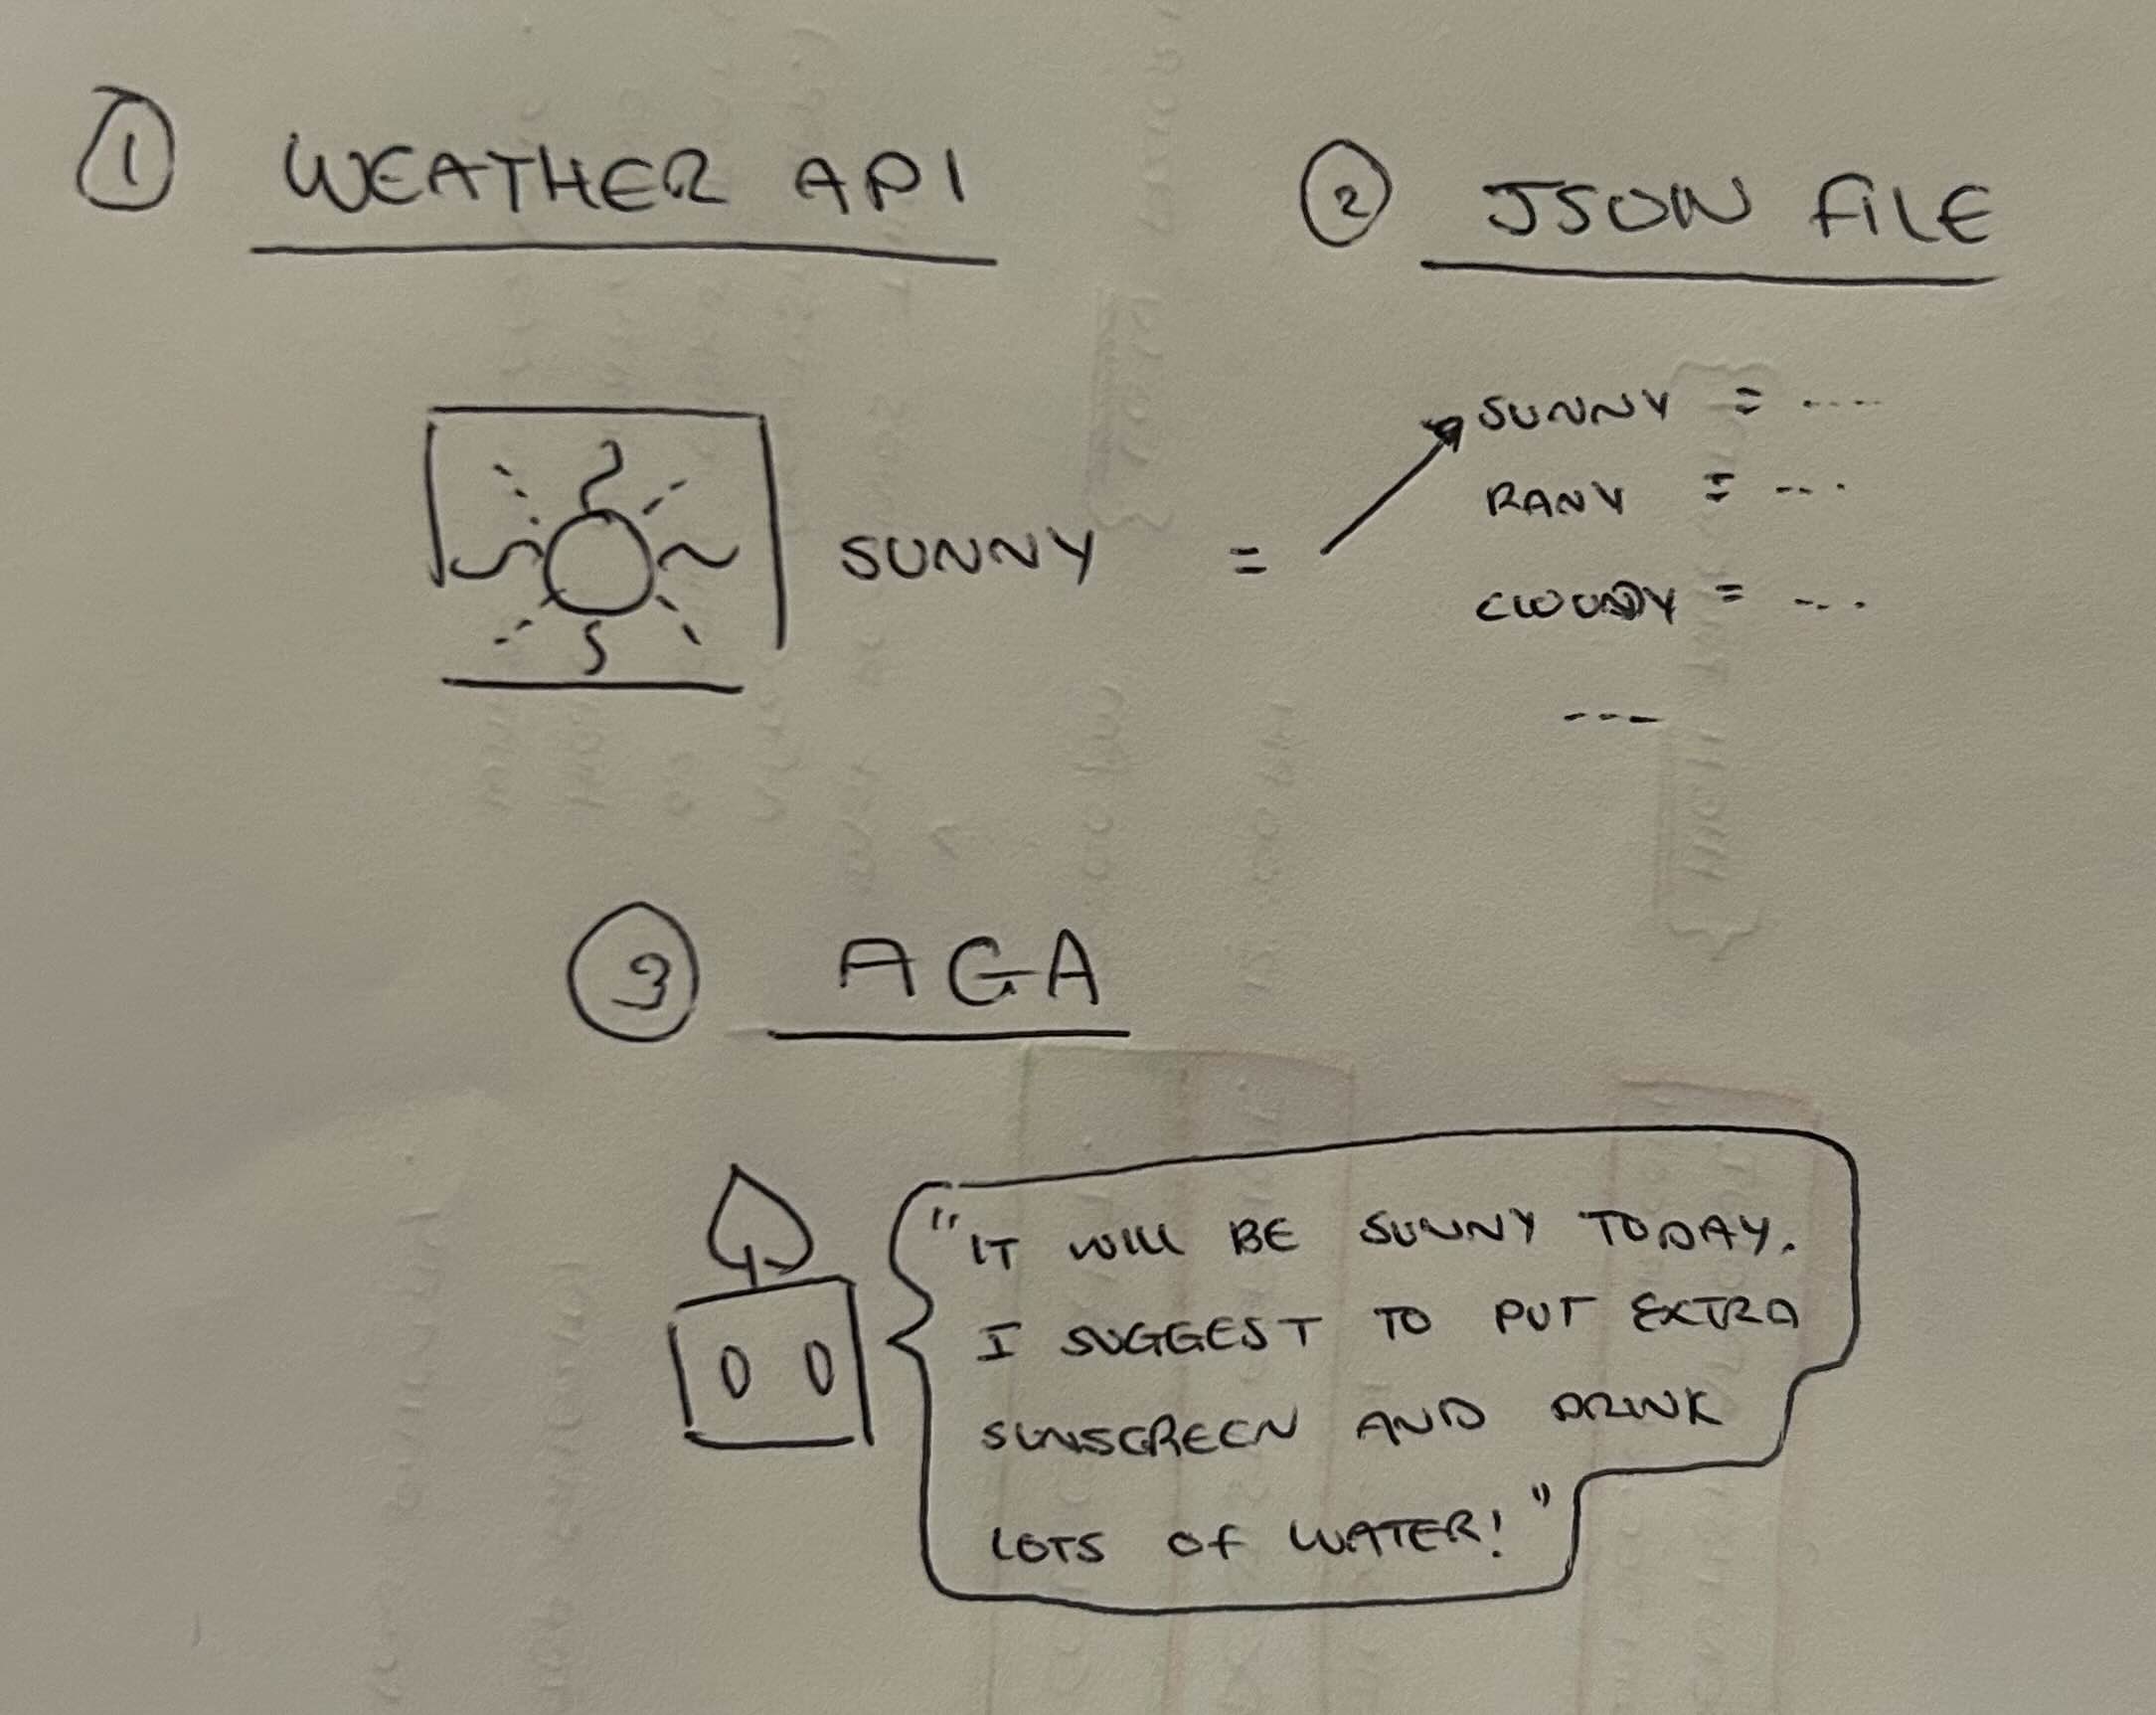 1 WEATHER API
SUNNY =
2 JSON FILE
SUNNY = ....
RANY = ...
CLOUDY = ...
---
3 AGA
"IT WILL BE SUNNY TODAY.
I SUGGEST TO PUT EXTRA
SUNSCREEN AND DRINK
LOTS OF WATER!"